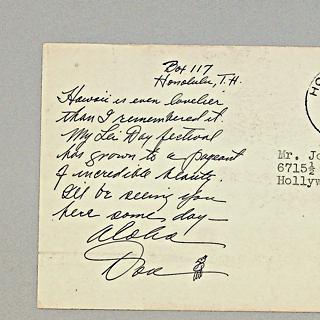 Box 117
Honolulu, T.H.
Hawaii is even lovelier
than I remembered it.
My Lei Day festival
has grown to a pageant
of incredible beauty.
I'll be seeing you
here some day—
Aloha
Don
HO
Mr. Jo
6715½
Hollyw